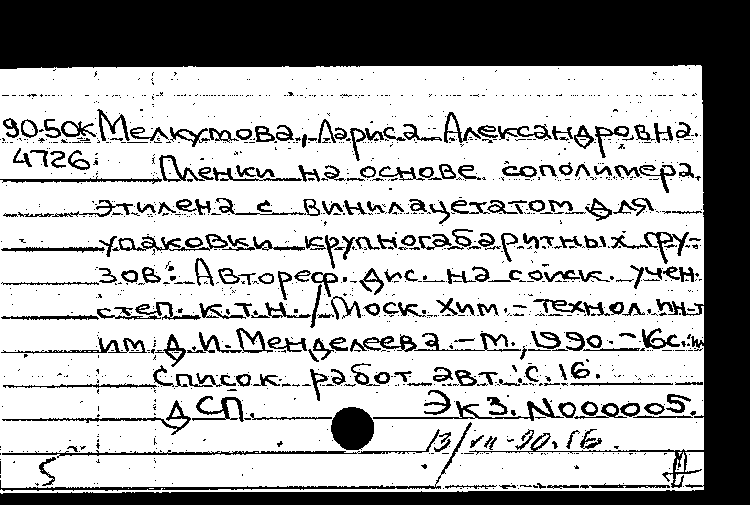 90-50к Мелкумова, Лариса Александровна.
4726. Пленки на основе сополимера
этилена с винилацетатом для
упаковки крупногабаритных гру-
зов: Автореф. дис. на соиск. учен.
степ. к.т.н. / Моск. хим.-технол. ин-т
им. Д.И. Менделеева. - М., 1990. - 16с.
Список работ авт.: с. 16.
ДСП. Экз. N000005.
13/VII-90.
5